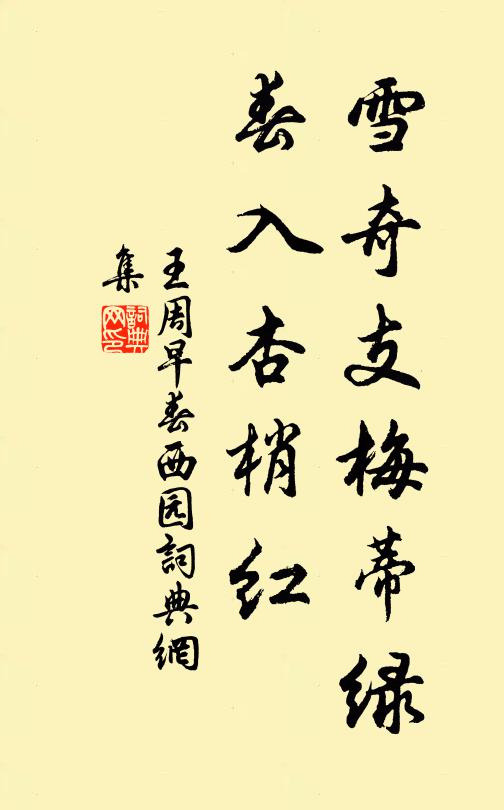 雪奇支梅蒂绿
春入杏梢红
王周早春西园詞典網
集
詞典网印